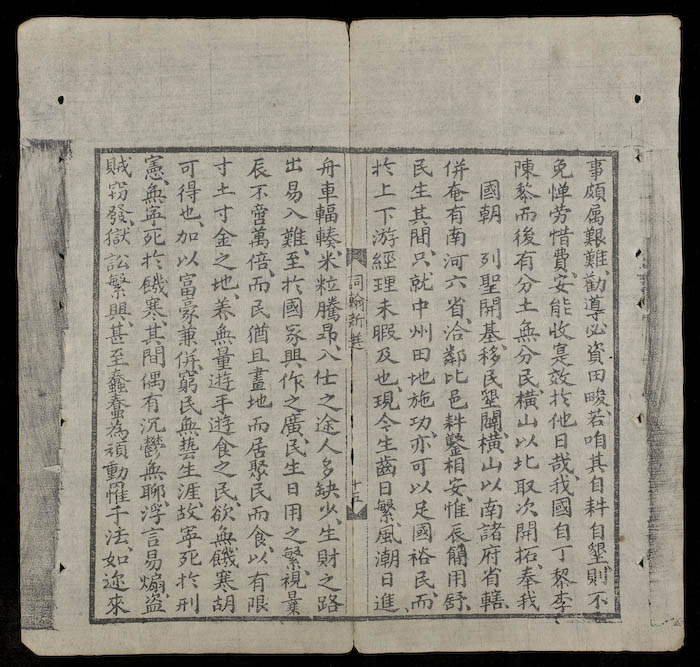 事頗属艱難、勸導必資田畯、若咱其自耕自墾、則不
免惮劳惜費、安能收寔效於他日哉、我國自丁黎李
陳黎而後有分土無分民、横山以北取次開拓、奉我
國朝 列聖開基、移民墾闢、横山以南諸府省轄、
併奄有南河六省、洽鄰比邑、耕鑿相安、惟辰簡用舒、
民生其間、只就中州田地施功、亦可以足國裕民、而
於上下游經理未暇及也、現今生齒日繁、風潮日進
詞翰新選
舟車輻輳、米粒騰昂、入仕之途、人多缺少、生財之路
出易入難、至於國家興作之廣、民生日用之繁、視曩
辰不啻萬倍、而民猶且畫地而居、聚民而食、以有限
寸土寸金之地、养無量遊手遊食之民、欲無饑寒胡
可得也、加以富豪兼併、窮民無藝生涯、故寧死於刑
憲、無寧死於饑寒、其間偶有沉鬱無聊、浮言易煽、盗
賊窃發、獄訟繁興、甚至蠢蠢為頑、動罹于法、如迩來